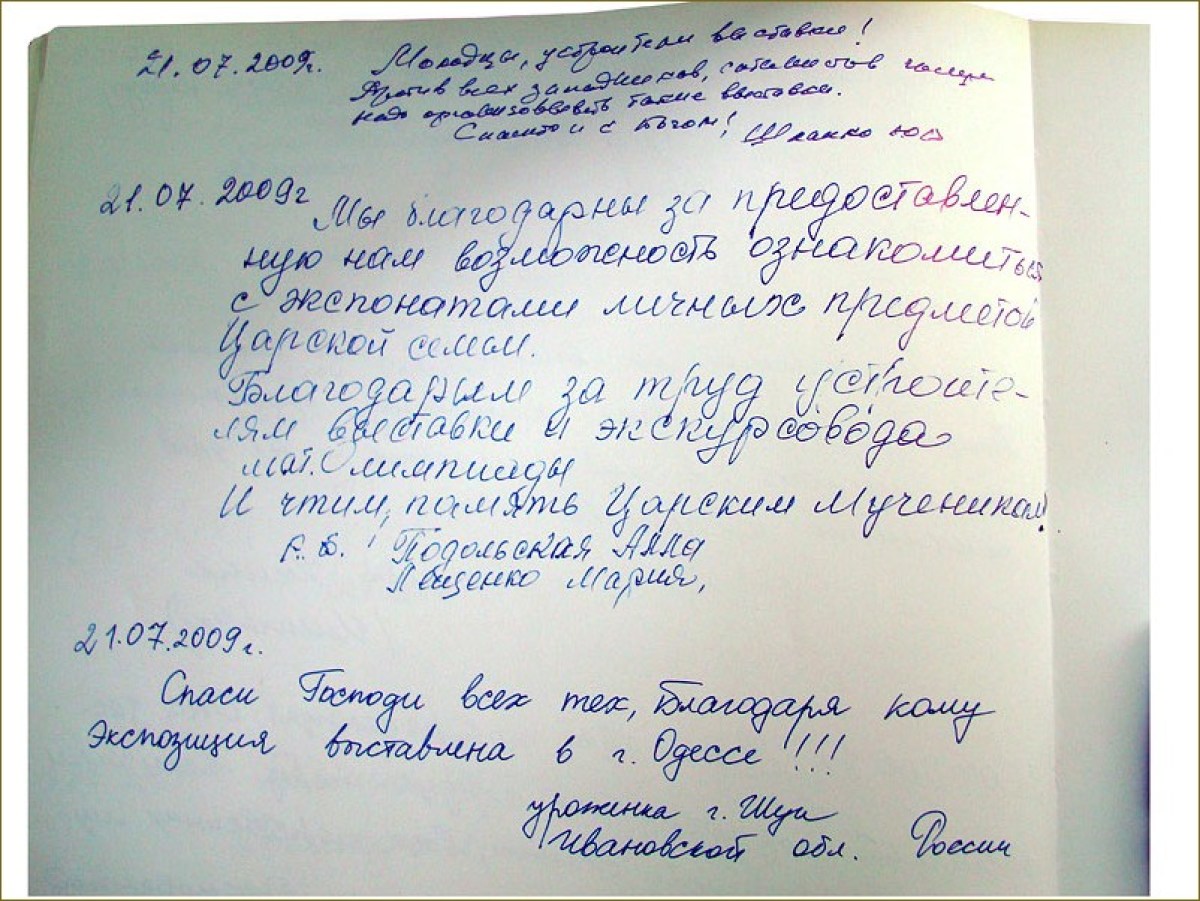 21.07.2009г. Молодцы, устроители выставки!
Против всех западников, сатанистов чаще
надо организовывать такие выставки.
Спасибо и с Богом!
21.07.2009г
Мы благодарны за предоставлен-
ную нам возможность ознакомиться
с экспонатами личных предметов
Царской семьи.
Благодарим за труд устроите-
лям выставки и экскурсовода
мат. Олимпиады
И чтим, память Царским Мученикам!
Подольская Алла
Лещенко Мария,
21.07.2009г.
Спаси Господи всех тех, Благодаря кому
Экспозиция выставлена в г. Одессе!!!
уроженка г. Шуи
Ивановской обл. России